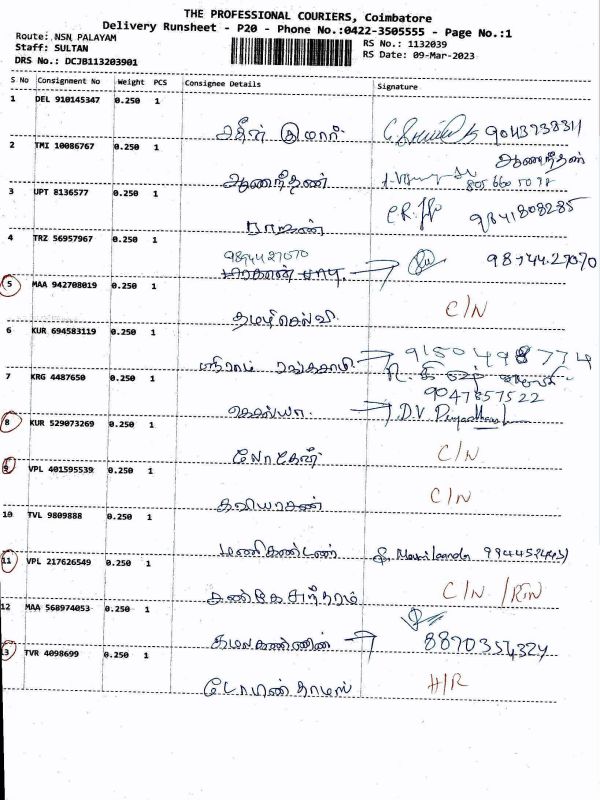 THE PROFESSIONAL COURIERS, Coimbatore
Delivery Runsheet - P20 - Phone No.:0422-3505555 - Page No.:1
Route: NSN PALAYAM
RS No.: 1132039
Staff: SULTAN
RS Date: 09-Mar-2023
DRS No.: DCJB113203901
S No Consignment No Weight PCS Consignee Details Signature
1 DEL 910145347 0.250 1
சதீஸ் குமார் 9043738311
2 TMI 10086767 0.250 1
ஆனந்தன்
ஆனந்தன்
3 UPT 8136577 0.250 1
ராஜன் 9841808285
4 TRZ 56957967 0.250 1
9894427070
9894427070
5 MAA 942708019 0.250 1
தமிழ்செல்வி C/N
6 KUR 694583119 0.250 1
ஸ்ரீராம் ரங்கசாமி 9150498774
7 KRG 4487650 0.250 1
9047857522
கௌசல்யா
8 KUR 529073269 0.250 1
லோகேஸ் C/N
9 VPL 401595539 0.250 1
கவியரசன் C/N
10 TVL 9809888 0.250 1
மணிகண்டன்
11 VPL 217626549 0.250 1
C/N /RTN
12 MAA 568974053 0.250 1
கமலகண்ணன் 8870354324
13 TVR 4098699 0.250 1
H/R